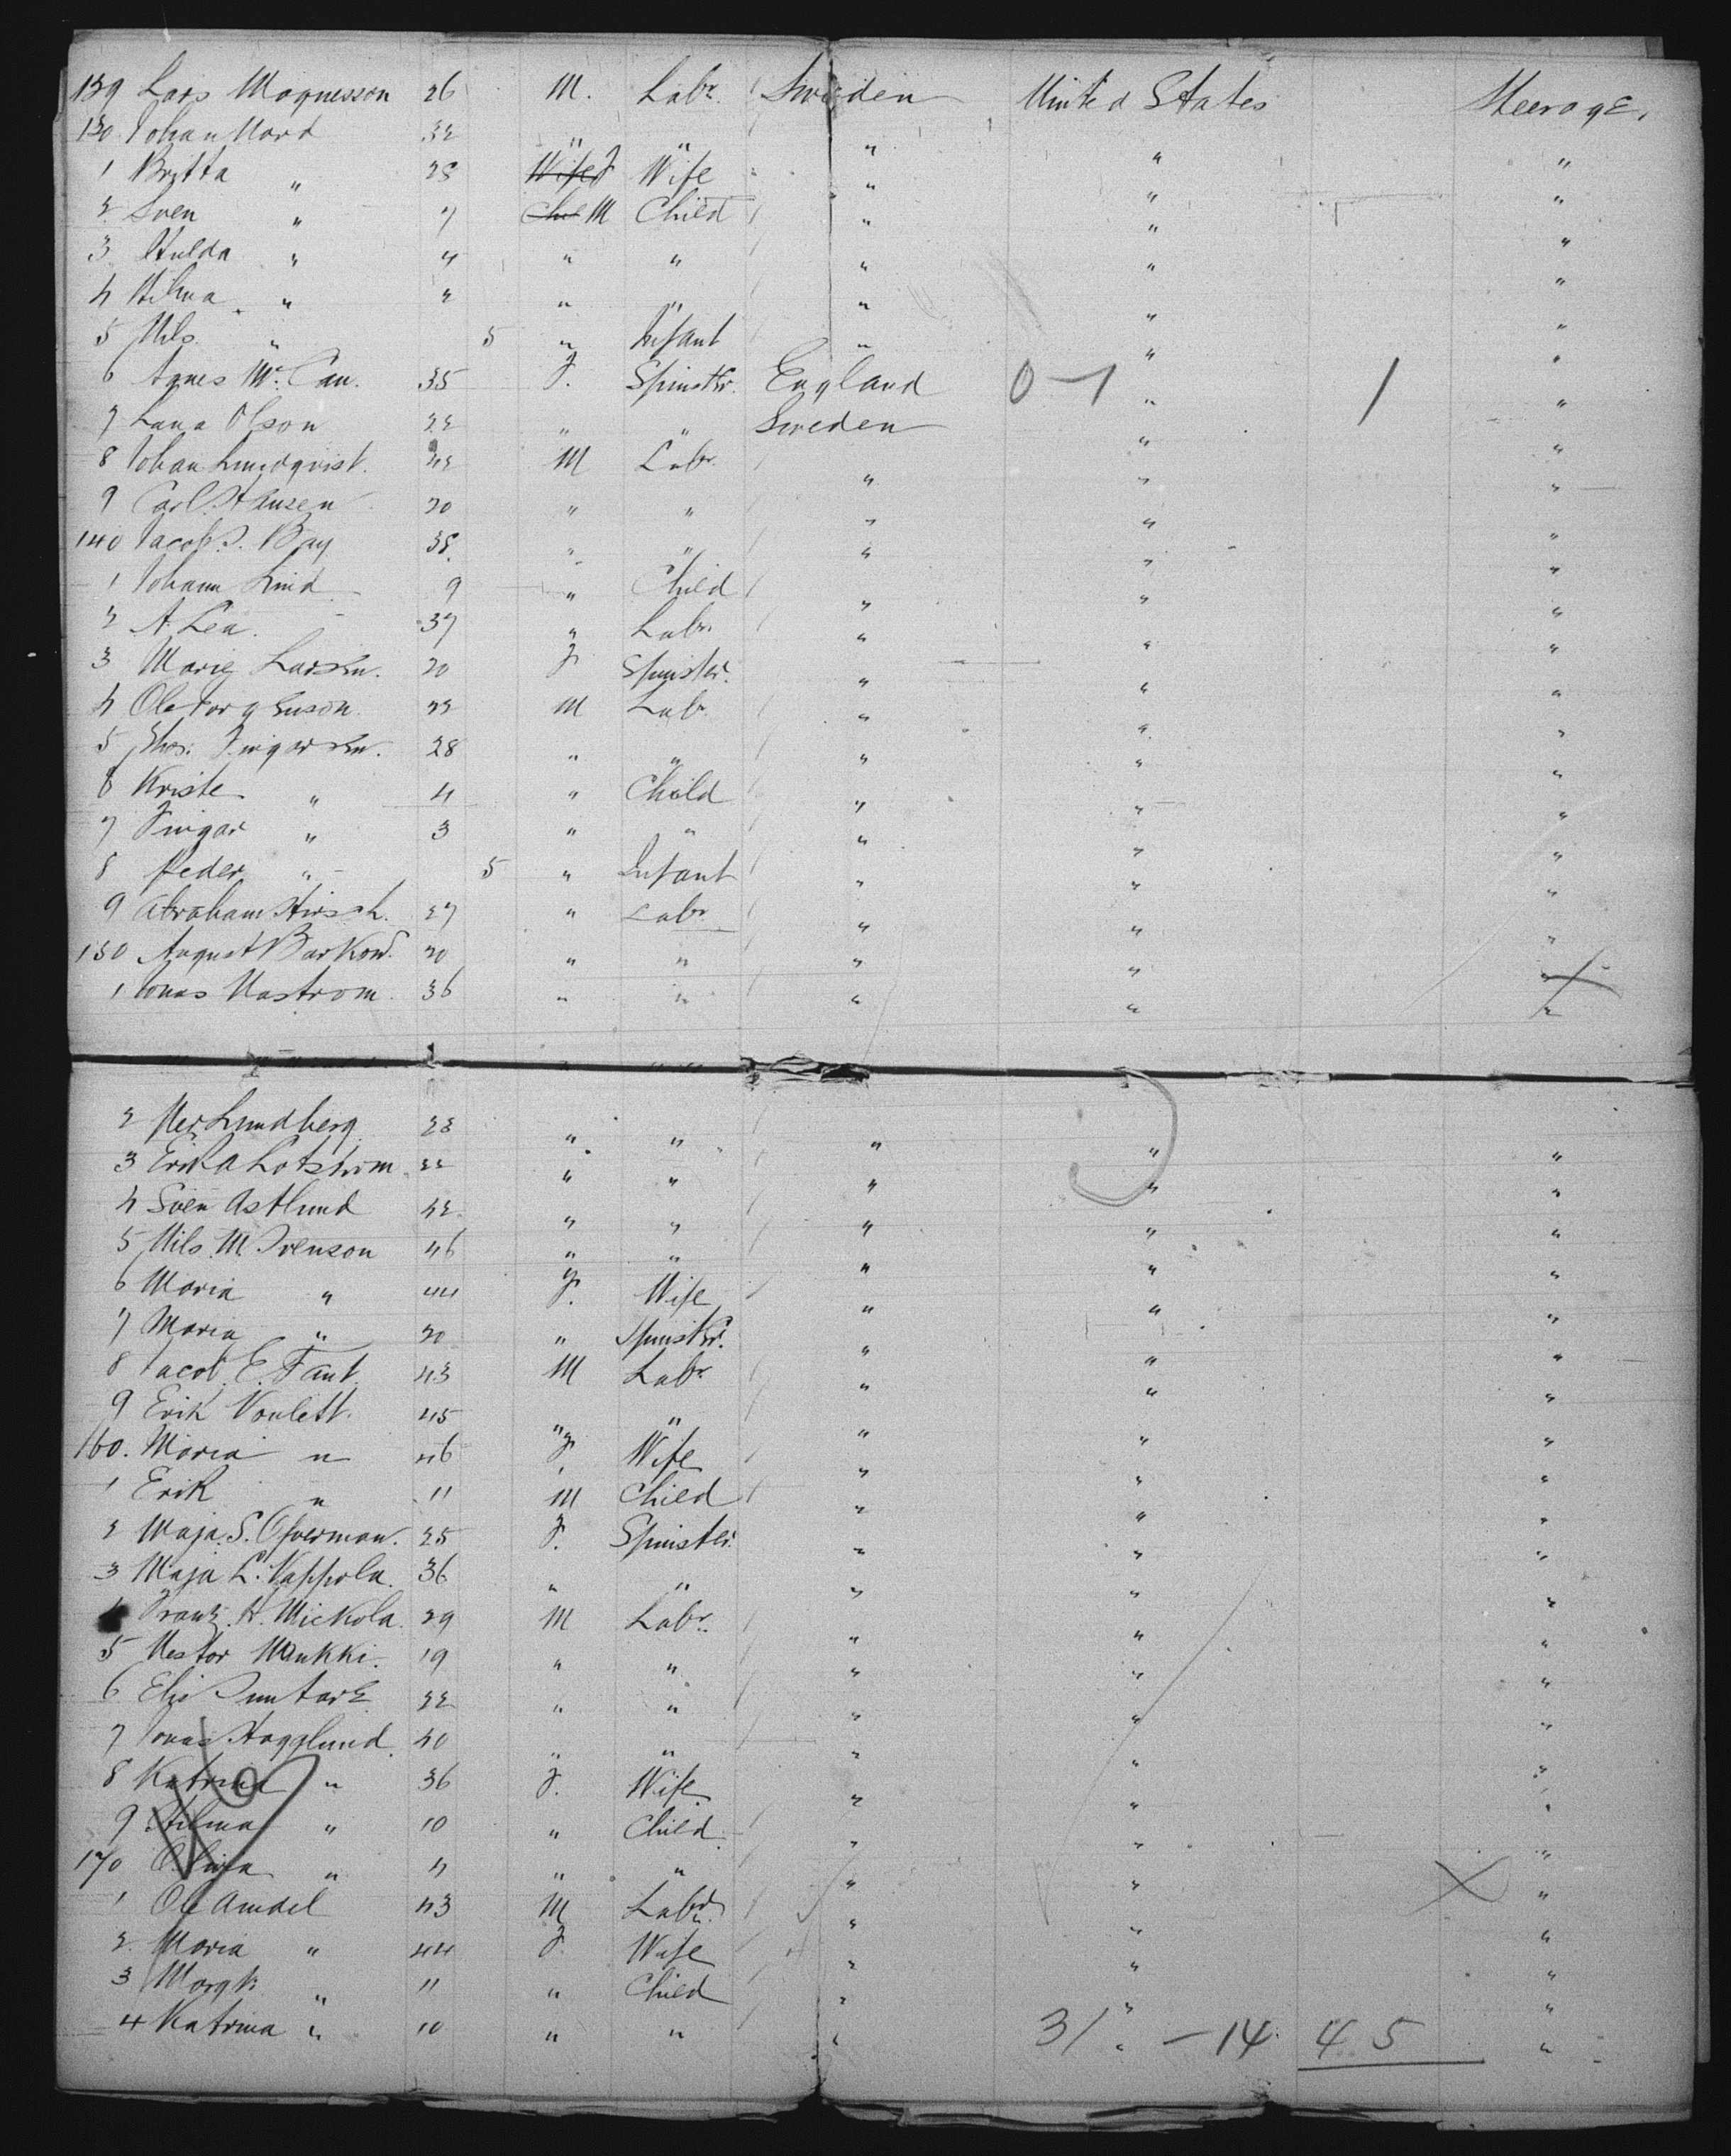 129 Lars Magnesson 26 M. Labr. Sweden United States Steerage.
130 Johan Nord 32 " " " " "
1 Britta " 28 F Wife " " "
2 Sven " 7 M Child " " "
3 Hulda " 4 " " " " "
4 Hilma " 2 " " " " "
5 Nils " 5 " Infant " " "
6 Agnes Mc. Can. 35 F. Spinstr. England 0-1 " 1 "
7 Lana Olson 22 " " Sweden " "
8 Johan Lindqvist. 42 M Labr. " " "
9 Carl Hansen 20 " " " " "
140 Jacob S. Bay 38 " " " " "
1 Johann Lind 9 " Child " " "
2 A. Lea. 37 " Labr. " " "
3 Marie Larsen. 20 F Spinster. " " "
4 Ole Torgenson. 22 M Labr. " " "
5 Fingarsen. 28 " " " " "
6 Kriste " 4 " Child " " "
7 Fingar " 3 " " " " "
8 Peder " 5 " Infant " " "
9 Abraham Hirsch. 27 " Labr " " "
150 August Barkow. 20 " " " " "
1 Jonas Nastrom. 36 " " " " "
2 Per Lundberg 28 " " " " "
3 Erik A Lotstrom 22 " " " " "
4 Sven Astlund 42 " " " " "
5 Nils M. Svenson 46 " " " " "
6 Maria " 44 F. Wife " " "
7 Maria " 20 " Spinstr. " " "
8 Jacob E. Fant. 43 M Labr. " " "
9 Erik Vonlett. 45 " " " " "
160. Maria " 46 F. Wife " " "
1 Erik " 11 M Child " " "
2 Maja S. Ofverman. 25 F. Spinster. " " "
3 Maja L. Kappola. 36 " " " " "
4 Franz H. Mickola. 29 M Labr. " " "
5 Nestor Wankki. 19 " " " " "
6 Elis 22 " " " " "
7 Jonas Hagglund. 40 " " " " "
8 Katrina " 36 F. Wife " " "
9 Hilma " 10 " Child " " "
170 " 4 " " " " "
1 Ole Amdel 43 M Labr. " " "
2. Maria " 44 F. Wife " " "
3 " 11 " Child " " "
4 Katrina " 10 " " " 31 " -14 45 "